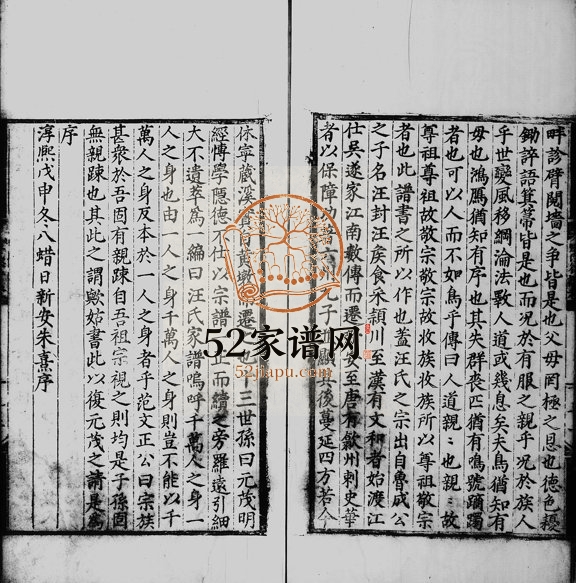 畔診臂鬩墻之争皆是也父母罔極之恩也徳色耰
鋤誶語箕箒皆是也而况於有服之親乎况於族人
乎世變風移綱淪法斁人道或幾息矣夫鳥猶知有
母也鴻鴈猶知有序也其失群喪匹猶有鳴號躑躅
者也可以人而不如鳥乎傳曰人道親親也親親故
尊祖尊祖故敬宗敬宗故收族收族所以尊祖敬宗
者也此譜書之所以作也蓋汪氏之宗出自魯成公
之子名汪封汪矦食采潁川至漢有文和者始渡江
仕吴遂家江南數傳而遷 安至唐有歙州刺史華
者以保障 六州 子 其後蔓延四方若今
休寧蔵溪 自黄墩 遷 也十三世孫曰元茂明
經愽學隠徳不仕以宗譜 而續之旁羅逺引細
大不遺萃爲一編曰汪氏家譜嗚呼千萬人之身一
人之身也由一人之身千萬人之身則豈不能以千
萬人之身反本於一人之身者乎范文正公曰宗族
甚衆於吾固有親踈自吾祖宗視之則均是子孫固
無親踈也其此之謂歟姑書此以復元茂之請是爲
序
淳熈戊申冬八蜡日新安朱熹序
52家谱网
52jiapu.com